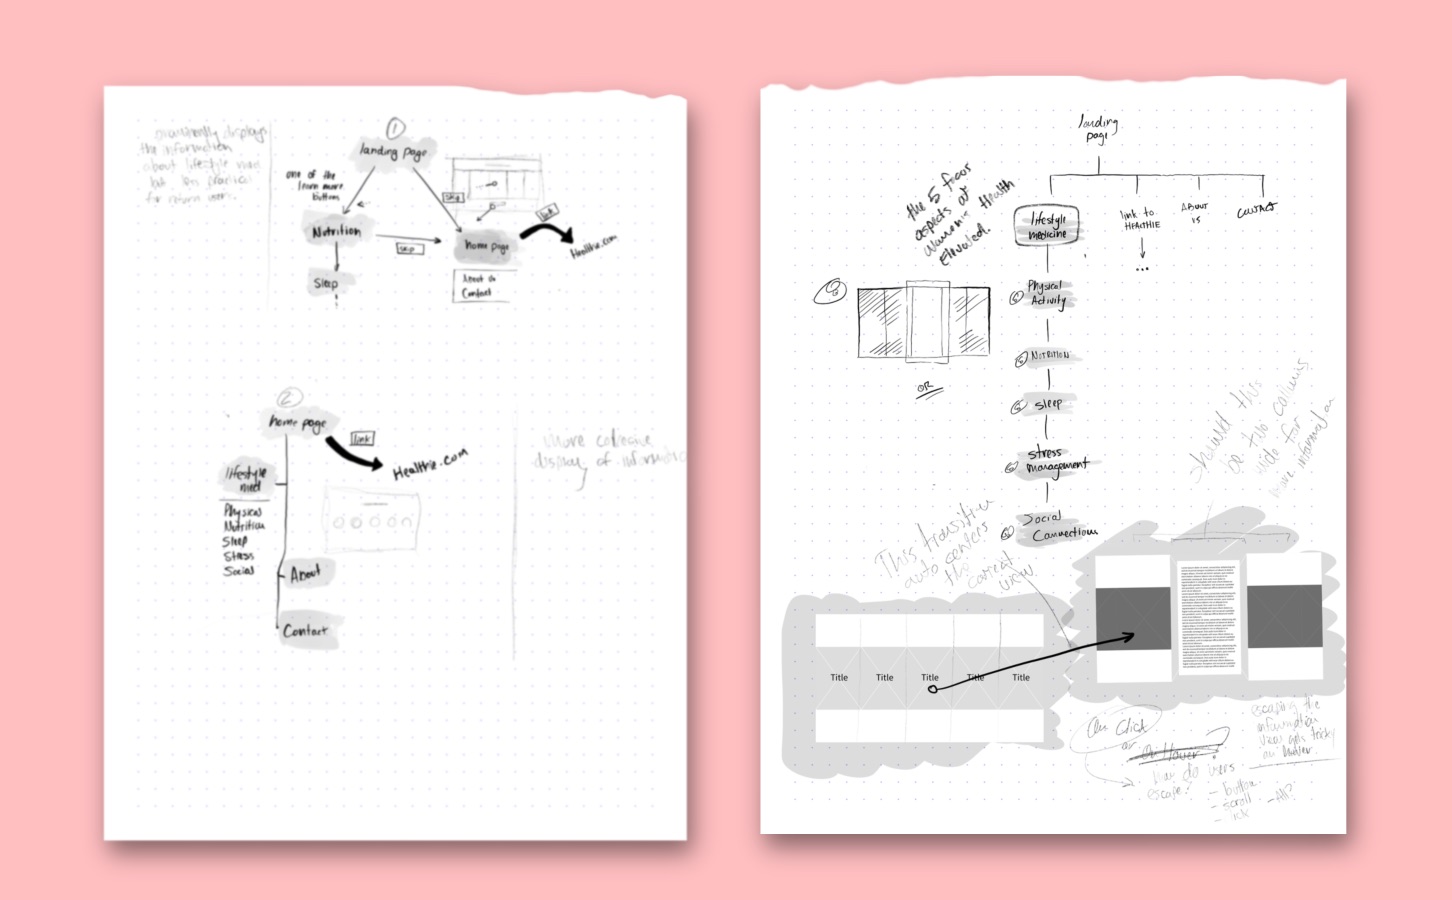 the information
about lifestyle med
but less practical
for return user.
1
landing page
one of the
learn more
buttons
skip
link
Nutrition
skip
home page
Healthie.com
Sleep
About Us
Contact
2
home page
link
Healthie.com
lifestyle
med
Physical
Nutrition
Sleep
Stress
Social
About
Contact
More cohesive
display of information
landing
page
the 5 focus
aspects at
Women's Health
Elevated.
lifestyle
medicine
link to
HEALTHIE
...
ABOUT
US
CONTACT
Physical
Activity
OR
NUTRITION
Sleep
Stress
management
Social
Connections
should this
be two columns
wide for
more information
This transition
auto centers
the correct
view
Title
Title
Title
Title
Title
On Click
or
On Hover?
How do users
escape?
- button
- scroll
- All?
escaping the
information
view gets tricky
on